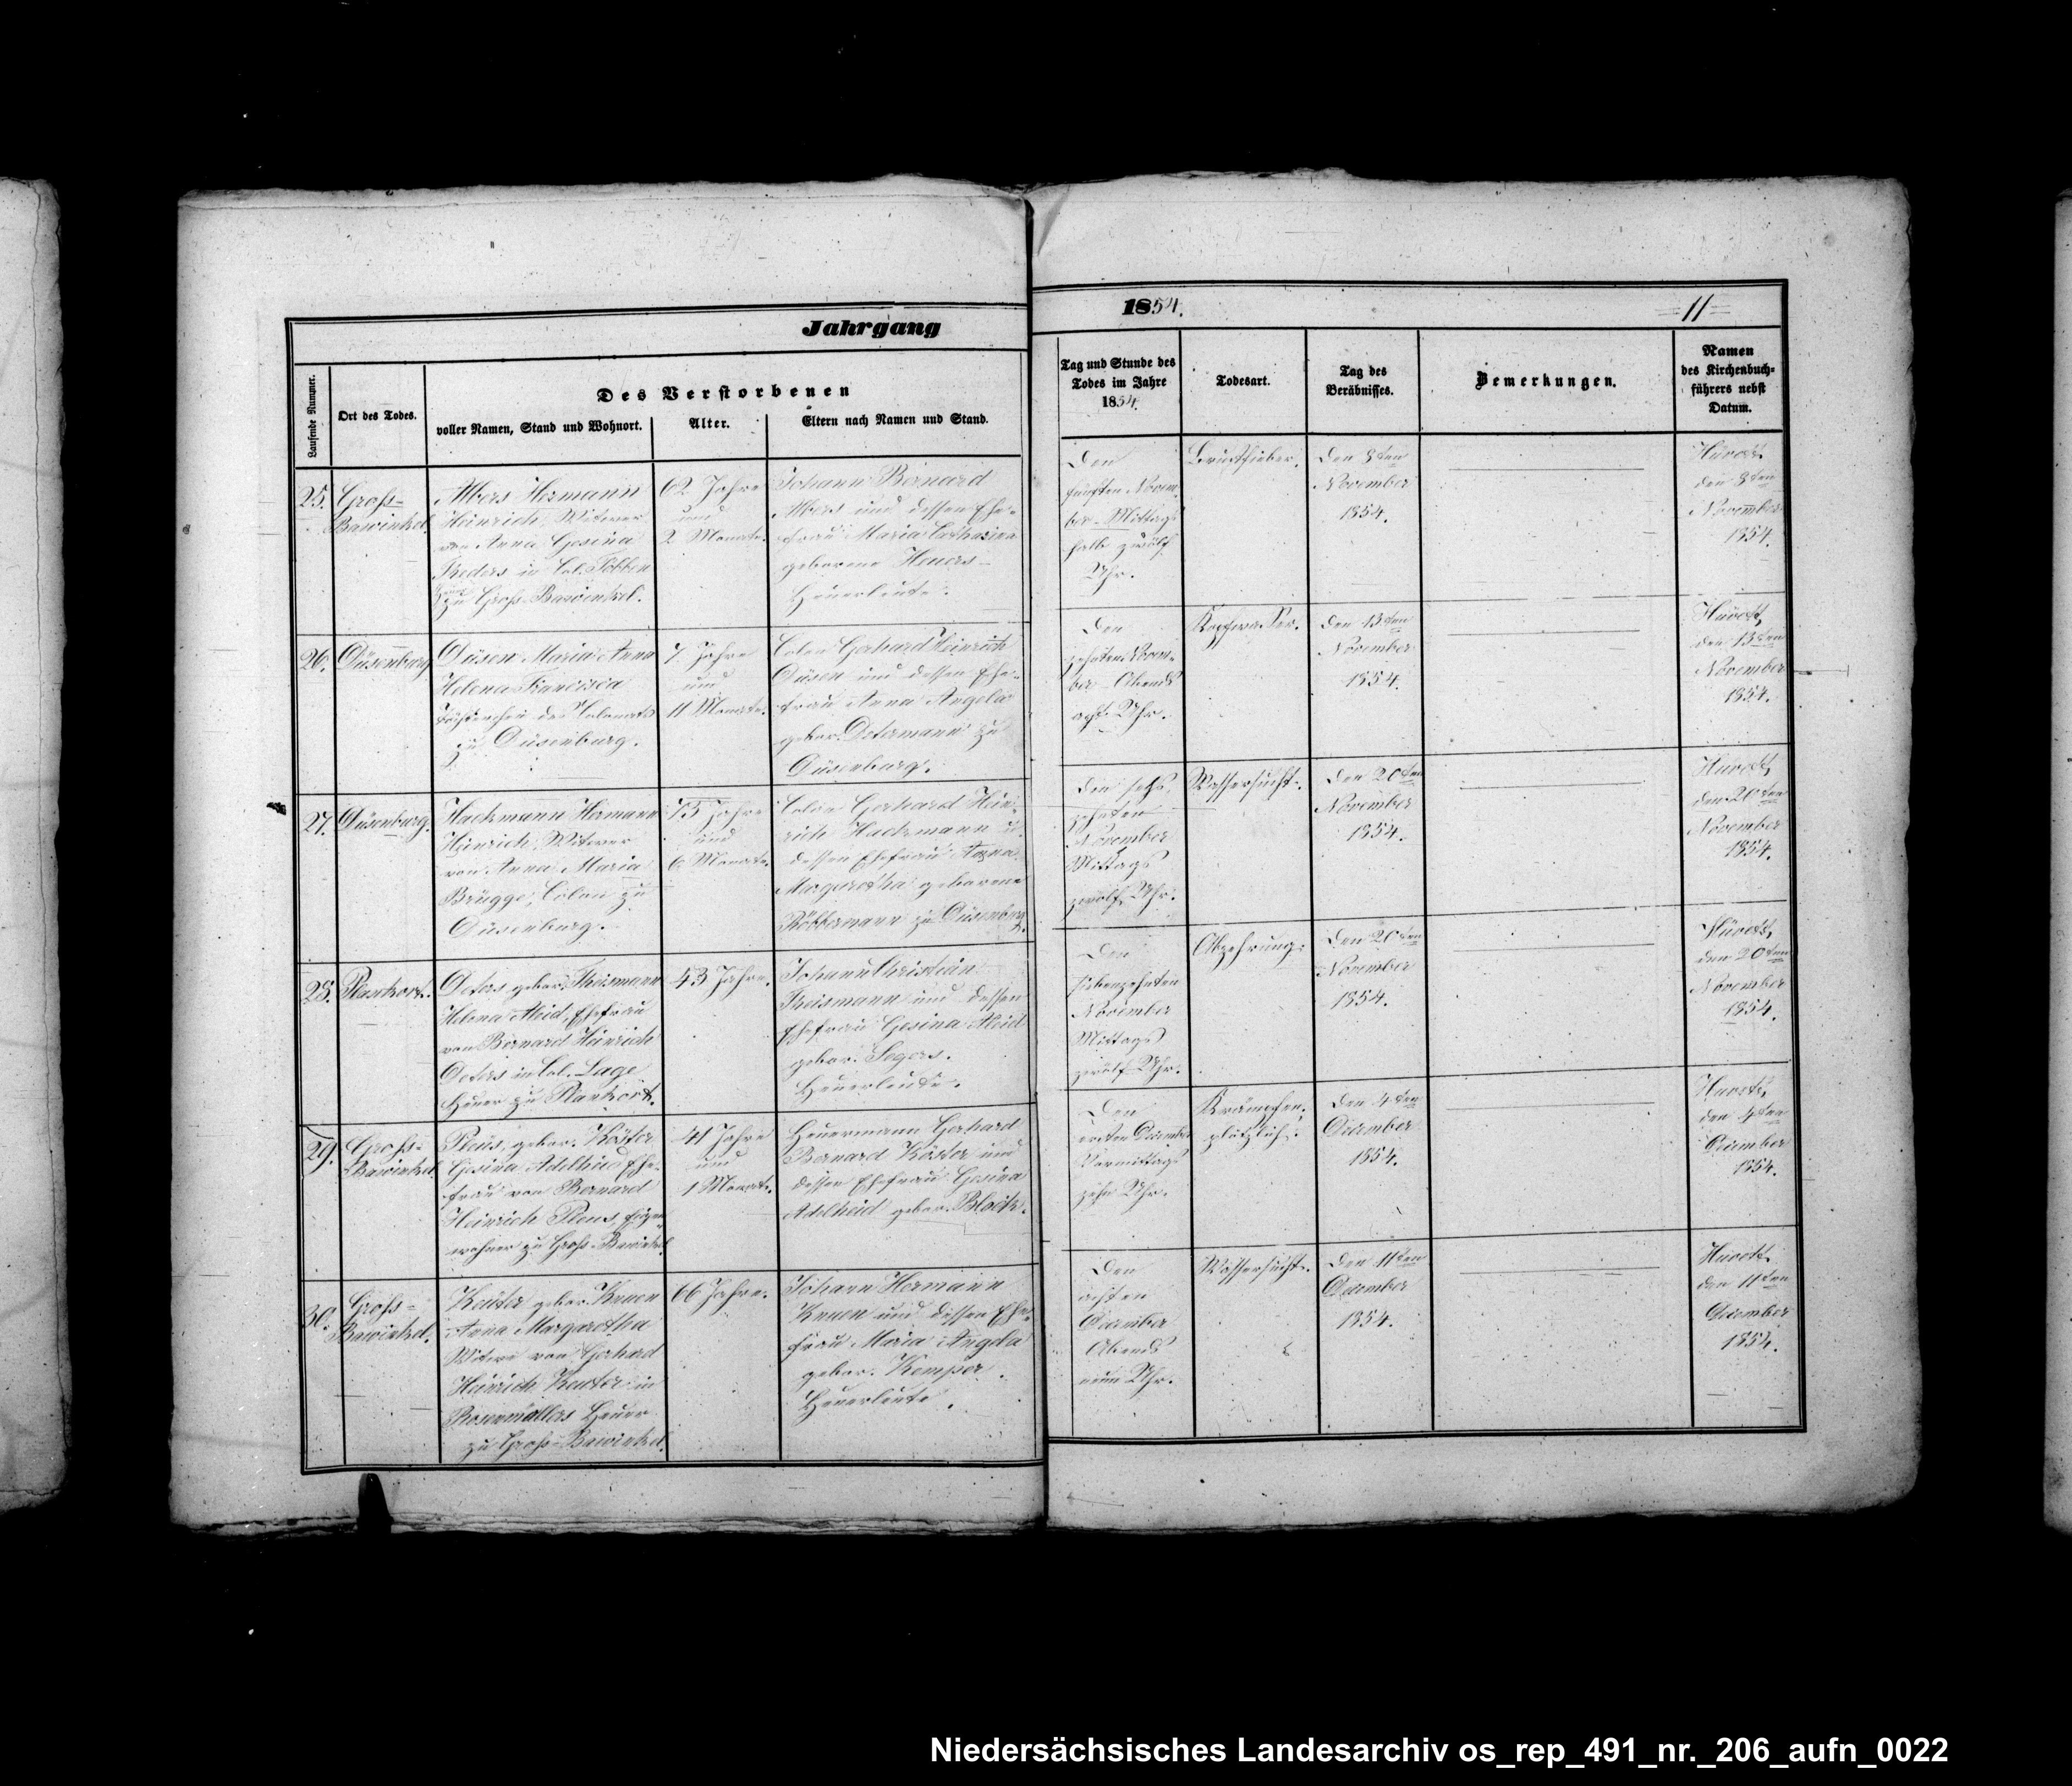 Jahrgang
1854.
=11=
Laufende Nummer.
Ort des Todes.
Des Verstorbenen
voller Namen, Stand und Wohnort.
Alter.
Eltern nach Namen und Stand.
Tag und Stunde des
Todes im Jahre
1854.
Todesart.
Tag des
Beräbnisses.
Bemerkungen.
Namen
des Kirchenbuch=
führers nebst
Datum.
25.
Groß-
Bawinkel.
Albers Hermann
Heinrich, Witwer
von Anna Gesina
in Col. Többen
zu Groß-Bawinkel.
62 Jahre
und
2 Monate.
Johann Bernard
Albers und dessen Ehe-
frau Maria Catharina
geborene Heuers
Heuerleute.
Den
fünften Novem-
ber Mittags
halb zwölf
Uhr.
Brustfieber.
Den 8ten
November
1854.
den 8ten
November
1854.
26.
Düsenburg.
Düsen Maria Anna
Helena Francisca
Töchterchen des Colonats
zu Düsenburg.
7 Jahre
und
11 Monate.
Colon Gerhard Heinrich
Düsen und dessen Ehe-
frau Anna Angela
gebor. Determann zu
Düsenburg.
Den
zehnten Novem-
ber Abends
acht Uhr.
Den 13ten
November
1854.
den 13ten
November
1854.
27.
Düsenburg.
Hackmann Hermann
Heinrich, Witwer
von Anna Maria
Brügge, Colon zu
Düsenburg.
75 Jahre
und
6 Monate.
Colon Gerhard Hein-
rich Hackmann u.
dessen Ehefrau Anna
Margaretha geborene
zu Düsenburg.
Den sechs-
zehnten
November
Mittags
zwölf Uhr.
Wassersucht.
Den 20ten
November
1854.
den 20ten
November
1854.
28.
Plankort.
Deters gebor. Theismann
Helena Aleid, Ehefrau
von Bernard Heinrich
Deters in Col. Lage
Heuer zu Plankort.
43 Jahre.
Johann Christian
Theismann und dessen
Ehefrau Gesina Aleid
gebor. Segers.
Heuerleute.
Den
siebenzehnten
November
Mittags
zwölf Uhr.
Abzehrung.
Den 20ten
November
1854.
den 20ten
November
1854.
29.
Groß-
Bawinkel.
Pleus, gebor. Köster
Gesina Adelheid Ehe-
frau von Bernard
Heinrich Pleus, Eigen-
wohner zu Groß-Bawinkel.
41 Jahre
und
1 Monate.
Heuermann Gerhard
Bernard Köster und
dessen Ehefrau Gesina
Adelheid gebor. Block.
Den
ersten December
Vormittags
zehn Uhr.
Krämpfen,
plötzlich.
Den 4ten
December
1854.
den 4ten
December
1854.
30.
Groß-
Bawinkel.
Keuter gebor. Knuen
Anna Margaretha
Witwe von Gerhard
Heinrich Keuter in
Heuer
zu Groß-Bawinkel.
66 Jahre.
Johann Hermann
Knuen und dessen Ehe-
frau Maria Angela
gebor. Kemper.
Heuerleute.
Den
achten
December
Abends
neun Uhr.
Wassersucht.
Den 11ten
December
1854.
den 11ten
December
1854.
Niedersächsisches Landesarchiv os_rep_491_nr._206_aufn_0022